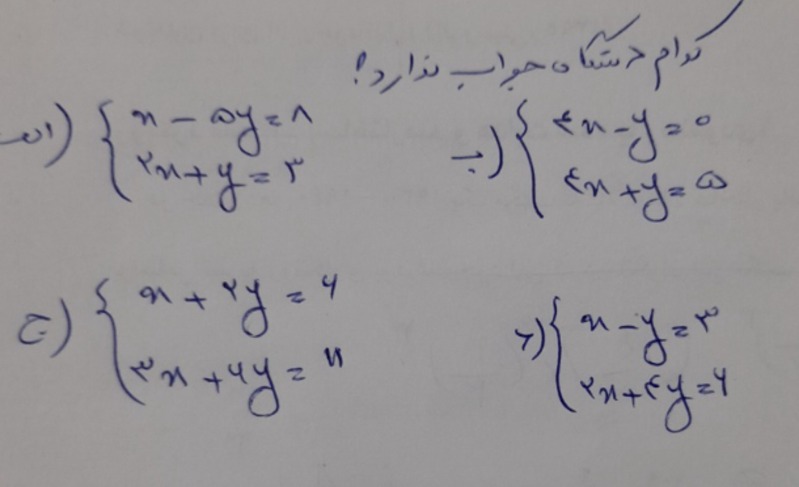 کدام دستگاه جواب ندارد؟
الف) { x - ۵y = ۸
۲x + y = ۳
ب) { ۴x - y = ۰
۴x + y = ۵
ج) { x + ۲y = ۶
۳x + ۶y =
د) { x - y = ۳
۲x + ۴y = ۶